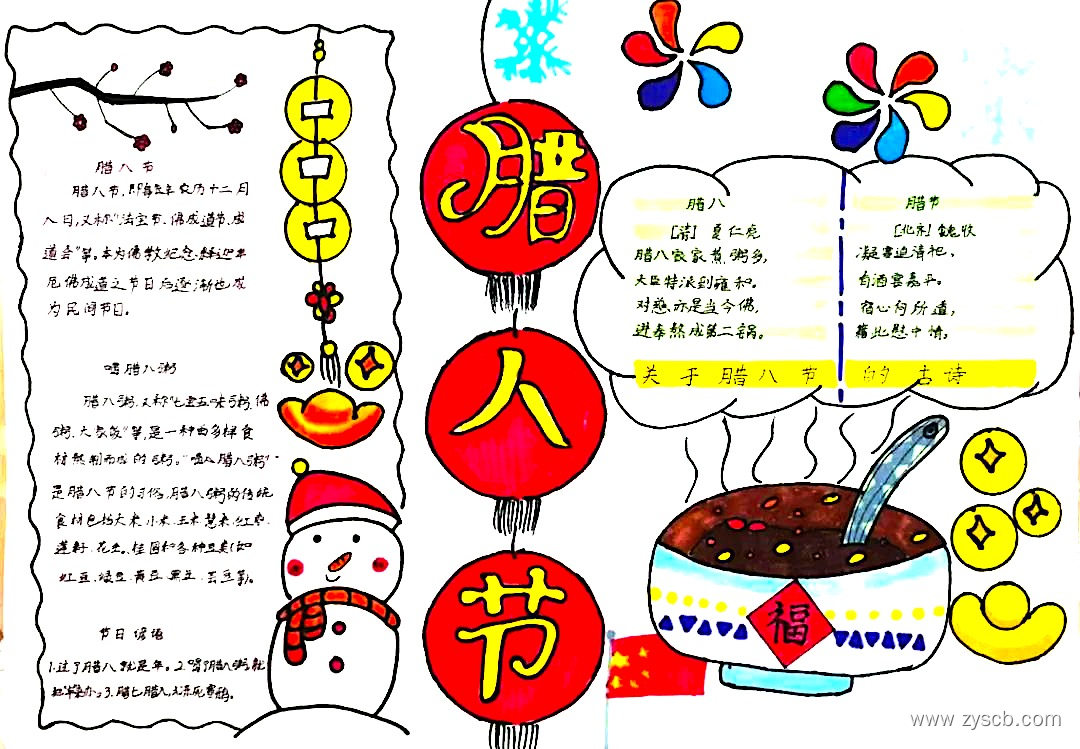 腊八节
腊八节,即每年农历十二月
八日,又称"法宝节、佛成道节,成
道会"等。本为佛教纪念释迦牟
尼佛成道之节日后逐渐也成
为民间节日。
喝腊八粥
腊八粥,又称"七宝五味粥,佛
粥,大家饭"等,是一种由多样食
材熬制而成的粥。"喝腊八粥"
是腊八节的习俗,腊八粥的传统
食材包括大米、小米、玉米、薏米、红枣、
莲籽、花生、桂圆和各种豆类(如
红豆、绿豆、黄豆、黑豆、芸豆等。
节日谚语
1.过了腊八就是年。2.喝了腊八粥,就
把年办。3.腊七腊八,冻死寒鸦。
腊
八
节
腊八
[清] 夏仁虎
腊八家家煮粥多,
大臣特派到雍和。
对慈亦是当今佛,
进奉熬成第二锅。
腊节
[北齐] 魏收
凝寒迫清祀,
有酒宴嘉平。
宿心何所道,
藉此慰中情。
关于腊八节的古诗
福
www.zyscb.com